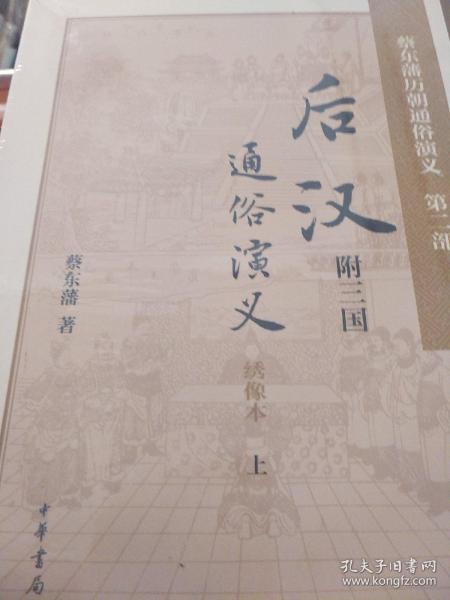 蔡东藩历朝通俗演义 第二部
后汉
附三国
通俗演义
绣像本 上
蔡东藩 著
中華書局
孔夫子旧书网
www.kongfz.com